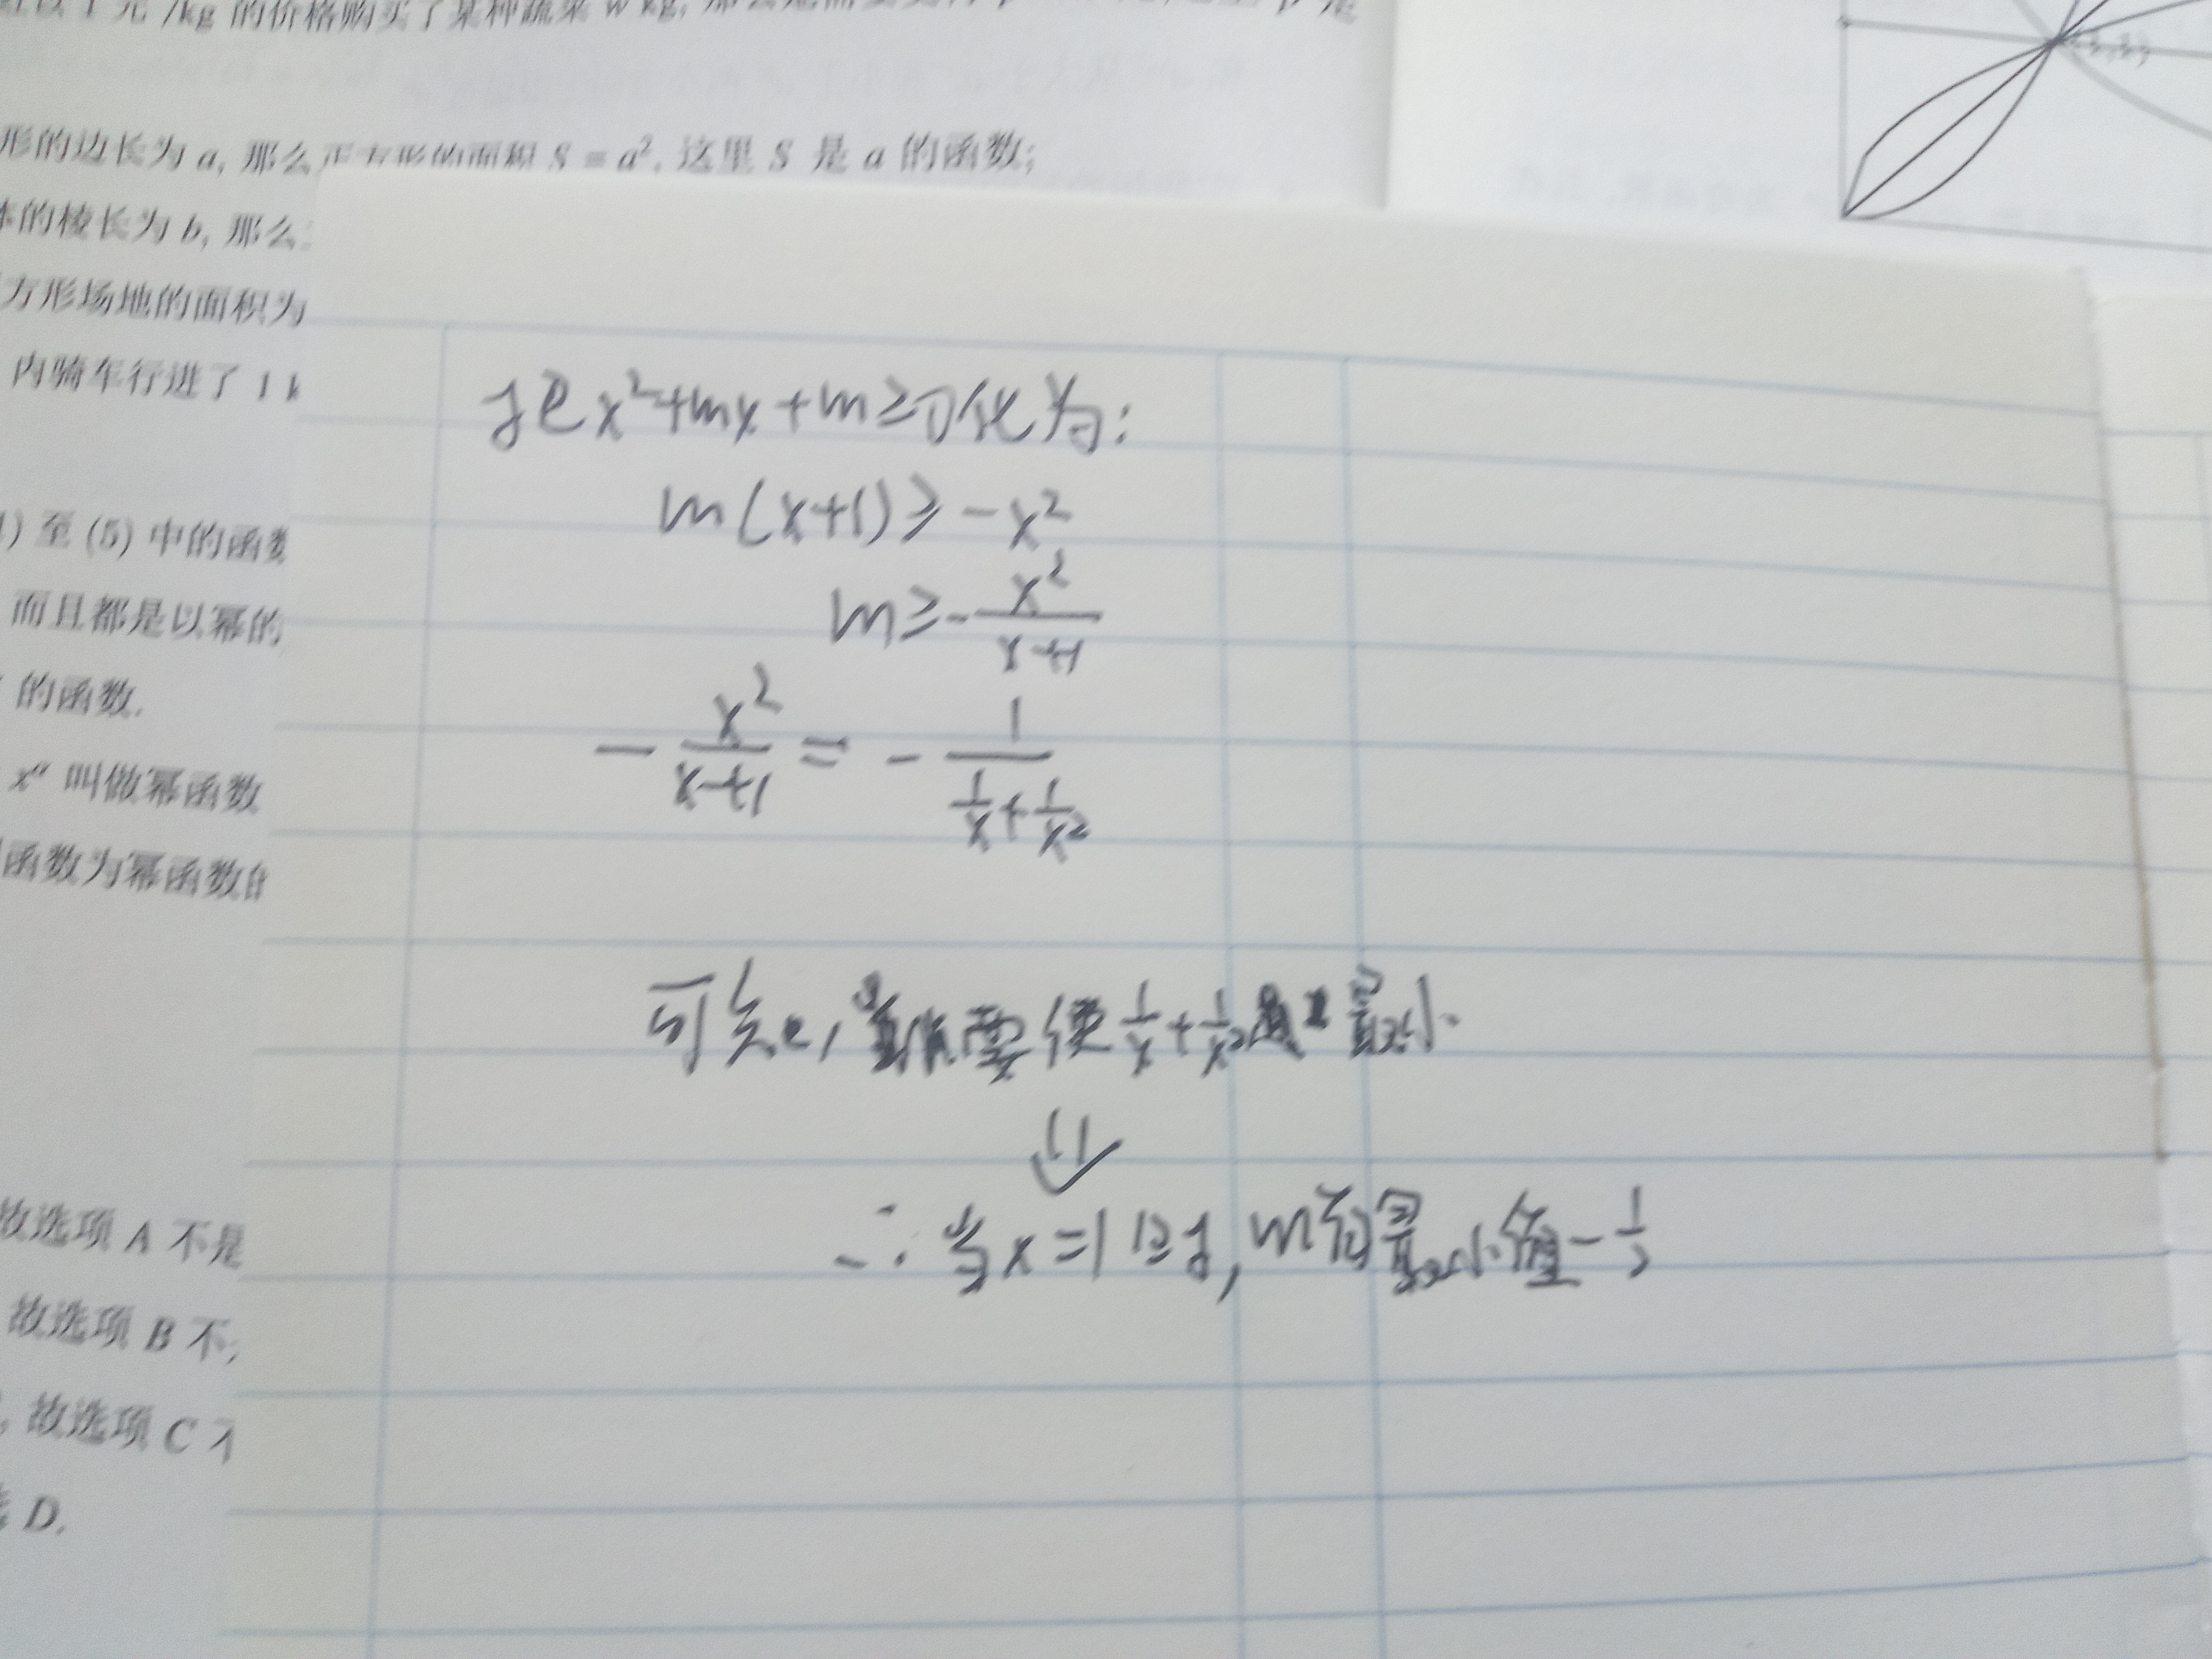 元/kg 的价格购买了某种蔬菜 w kg,
形的边长为 a, 那么正方形的面积 S = a². 这里 S 是 a 的函数;
的棱长为 b, 那么
方形场地的面积为
内骑车行进了 1 k
) 至 (5) 中的函数
而且都是以幂的
的函数.
xᵅ 叫做幂函数
函数为幂函数的
故选项 A 不是
故选项 B 不
故选项 C 不
D.
把x²+mx+m≥0化为:
m(x+1)≥-x²
m≥-x²/(x+1)
-x²/(x+1)=-1/(1/x+1/x²)
可知, 需要使1/x+1/x²最小.
⇓
∴当x=1时,m有最小值-1/2